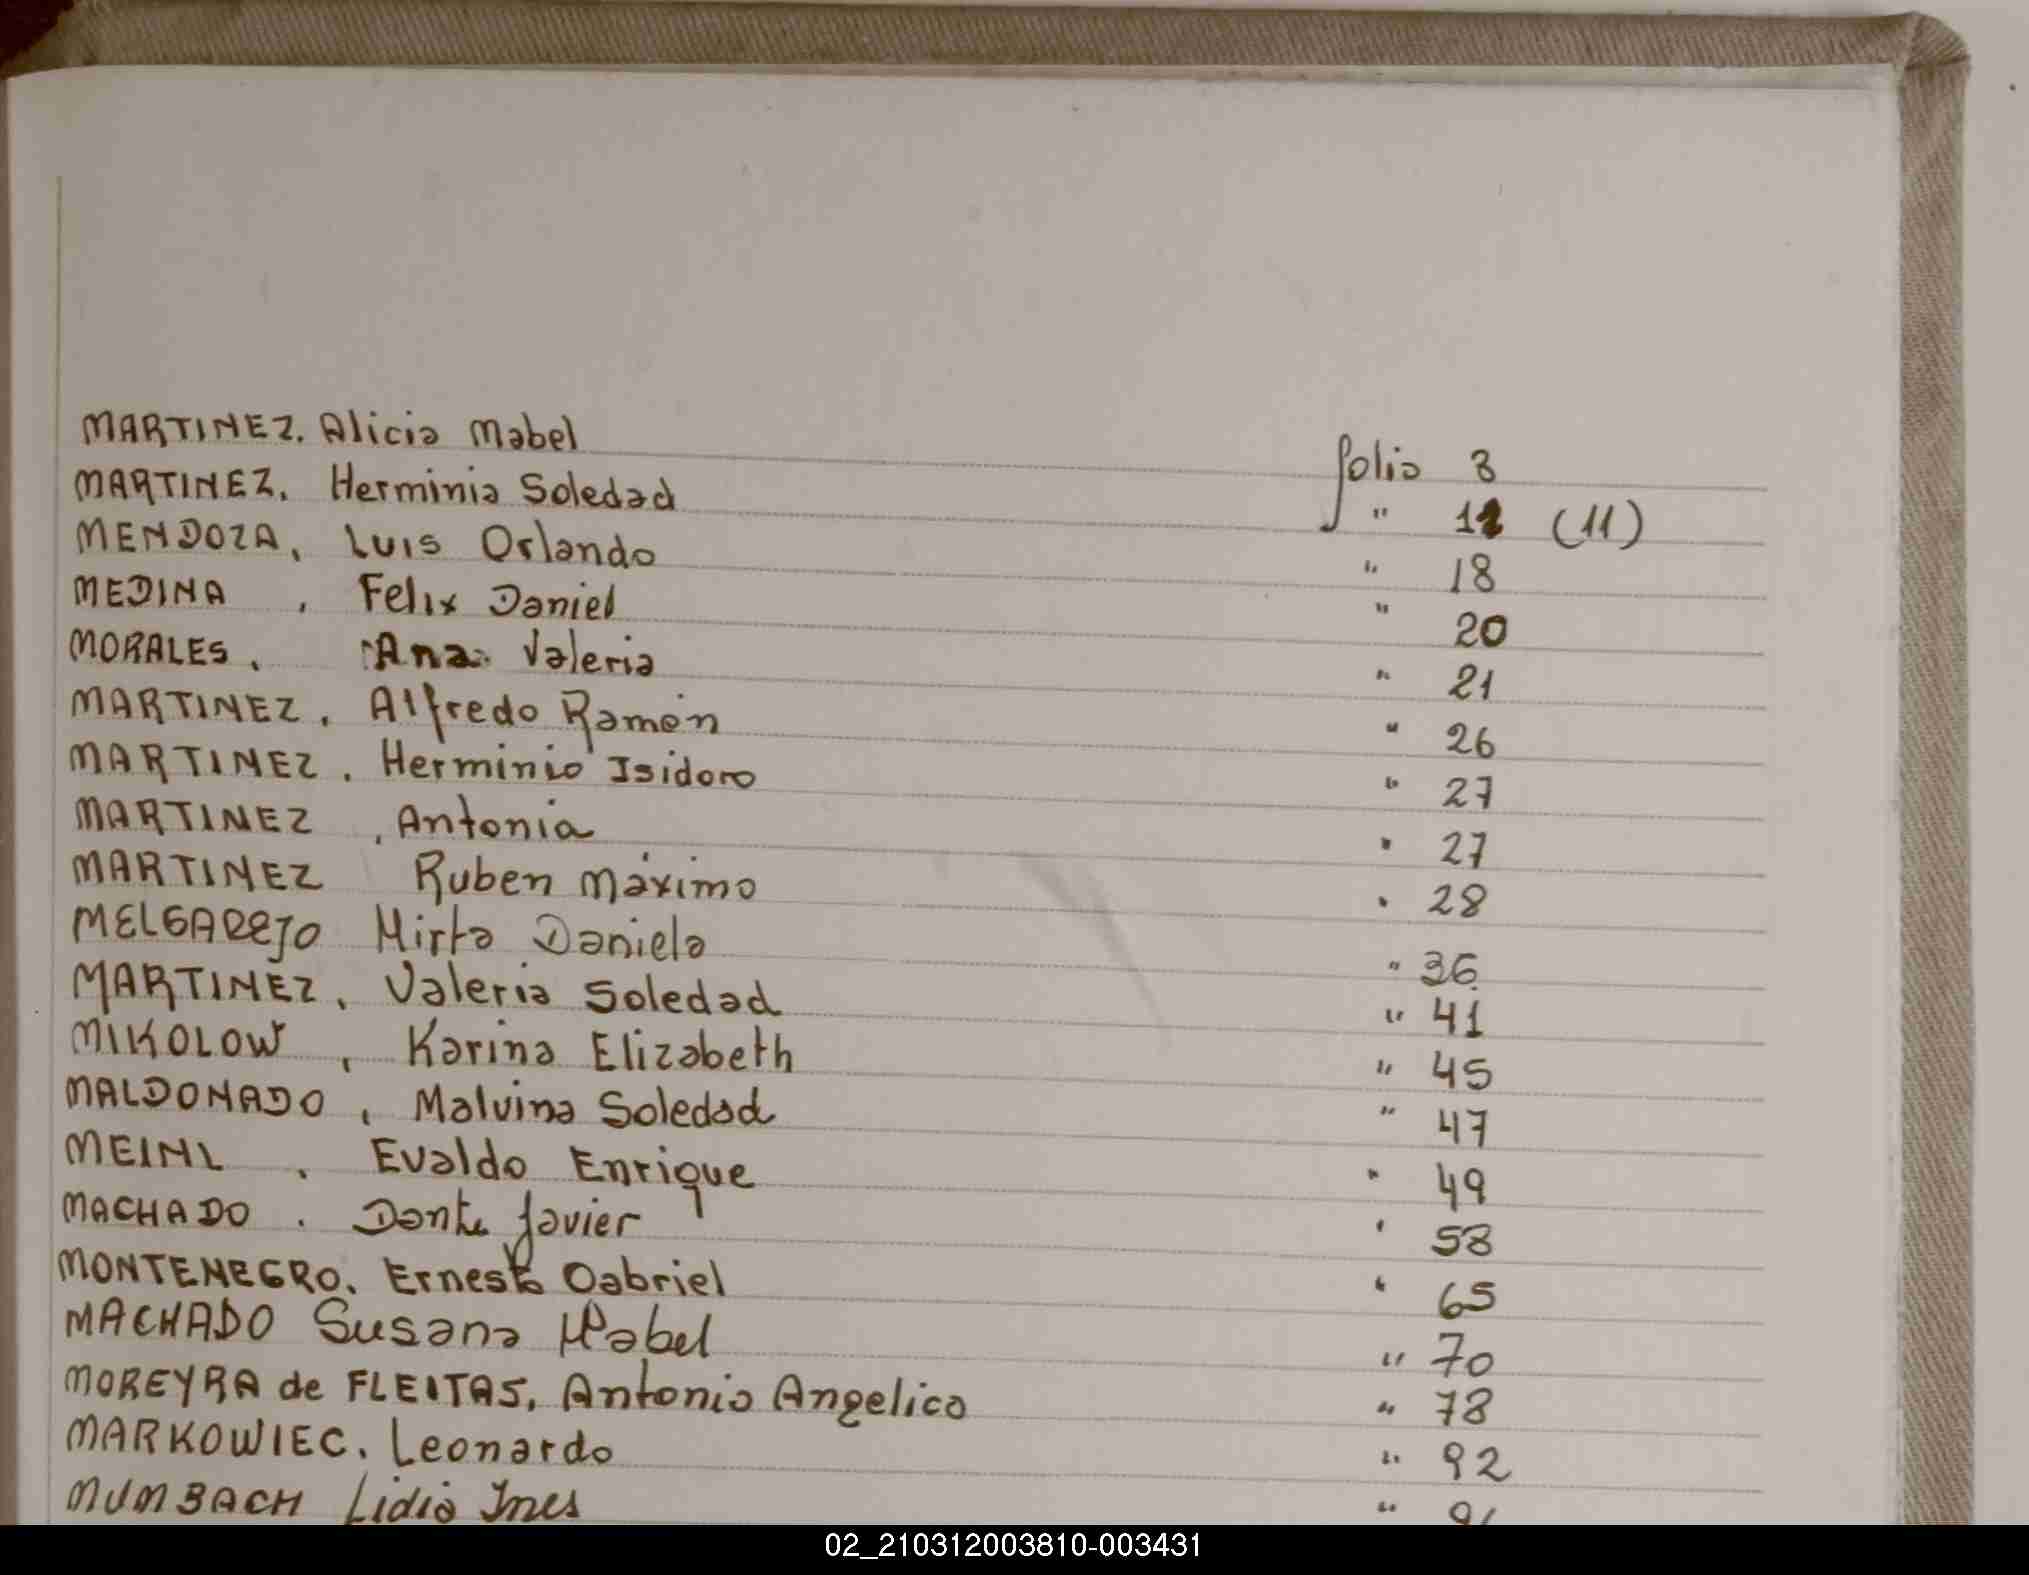 MARTINEZ. Alicia Mabel folio 3
MARTINEZ, Herminia Soledad " 11 (11)
MENDOZA, Luis Orlando " 18
MEDINA , Felix Daniel " 20
MORALES, Ana Valeria " 21
MARTINEZ, Alfredo Ramón " 26
MARTINEZ, Herminio Isidoro " 27
MARTINEZ , Antonia " 27
MARTINEZ Ruben Máximo " 28
MELGAREJO Mirta Daniela " 36
MARTINEZ, Valeria Soledad " 41
MIKOLOW , Karina Elizabeth " 45
MALDONADO , Malvina Soledad " 47
MEINL , Evaldo Enrique " 49
MACHADO . Dante Javier " 58
MONTENEGRO. Ernesto Gabriel " 65
MACHADO Susana Mabel " 70
MOREYRA de FLEITAS, Antonia Angelica " 78
MARKOWIEC. Leonardo " 92
MUMBACH Lidia Ines "
02_210312003810-003431